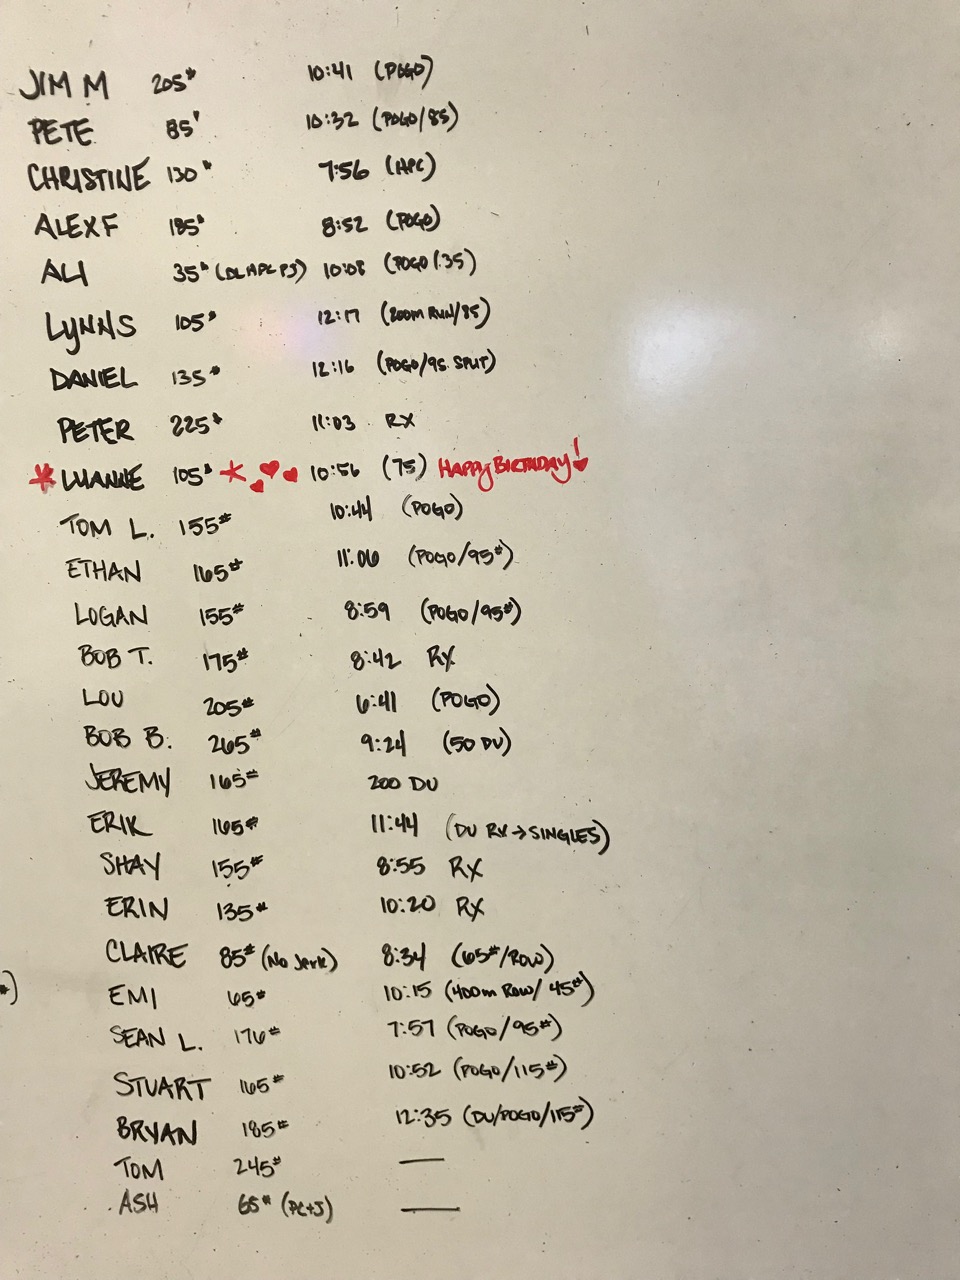 JIM M 205# 10:41 (POGO)
PETE 85# 10:32 (POGO/85)
CHRISTINE 130# 7:56 (HPC)
ALEX F 185# 8:52 (POGO)
ALI 35# (DL HPC PJ) 10:08 (POGO/35)
LYNN S 105# 12:17 (200M RUN/85)
DANIEL 135# 12:16 (POGO/95 SPLIT)
PETER 225# 11:03 RX
* LUANNE 105# * 10:56 (75) HAPPY BIRTHDAY!
TOM L. 155# 10:44 (POGO)
ETHAN 165# 11:06 (POGO/95#)
LOGAN 155# 8:59 (POGO/95#)
BOB T. 175# 8:42 RX
LOU 205# 6:41 (POGO)
BOB B. 265# 9:24 (50 DU)
JEREMY 165# 200 DU
ERIK 165# 11:44 (DU RX→SINGLES)
SHAY 155# 8:55 RX
ERIN 135# 10:20 RX
CLAIRE 85# (No Jerk) 8:34 (65#/ROW)
#) EMI 65# 10:15 (400m ROW/45#)
SEAN L. 176# 7:57 (POGO/95#)
STUART 165# 10:52 (POGO/115#)
BRYAN 185# 12:35 (DU/POGO/115#)
TOM 245# —
ASH 65# (PC+J) —